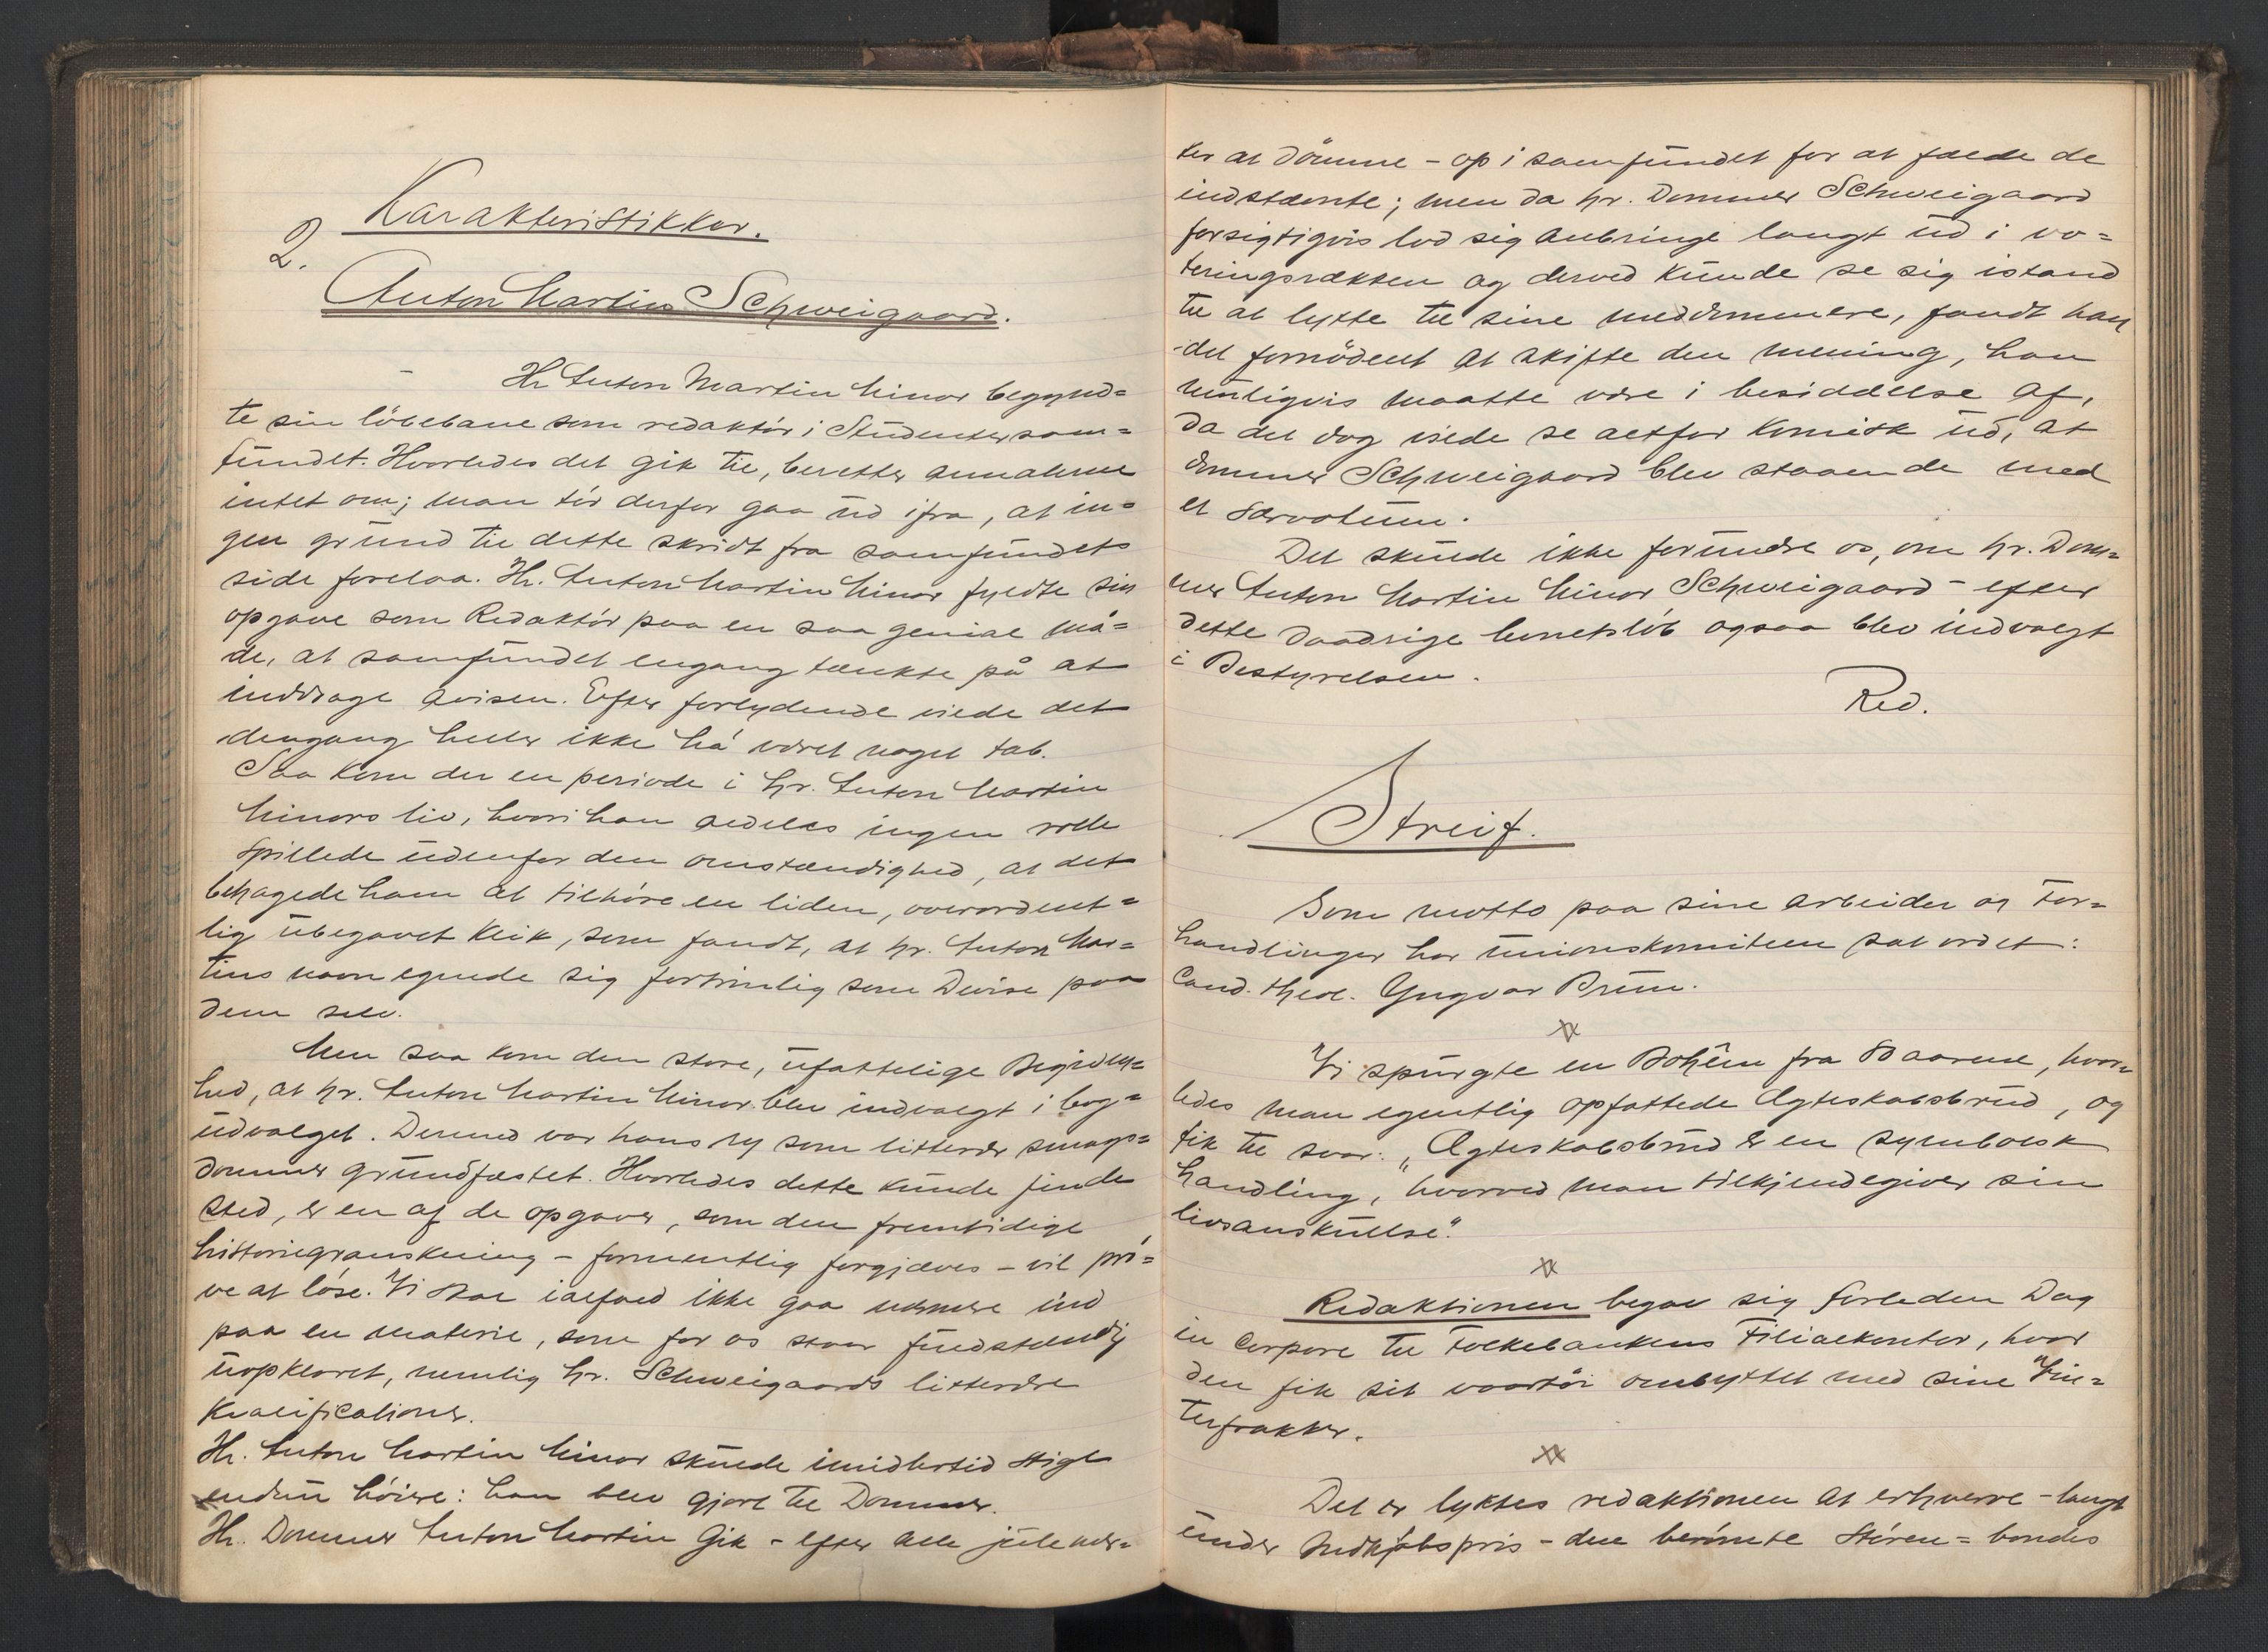 Karakteristikker.
2.
Anton Martin Schweigaard.
Hr Anton Martin Minor begynd=
te sin löbebane som redaktör i Studentersam=
fundet. Hvorledes det gik til, beretter annalerne
intet om; man tör derfor gaa ud ifra, at in=
gen grund til dette skridt fra samfundets
side forelaa. Hr. Anton Martin Minor fyldte sin
opgave som Redaktör paa en saa genial må=
de, at samfundet engang tænkte på at
inddrage avisen. Efter forlydende vilde det
dengang heller ikke ha været noget tab.
Saa kom der en periode i hr. Anton Martin
Minors liv, hvori han aldeles ingen rolle
spillede udenfor den omstændighed, at det
behagede ham at tilhöre en liden, overordent=
lig ubegavet klik, som fandt, at hr. Anton Mar=
tins navn egnede sig fortrinlig som Devise paa
dem selv.
Men saa kom den store, ufattelige Begiven=
hed, at hr. Anton Martin Minor blev indvalgt i bog=
udvalget. Dermed var hans ry som litterær smags=
dommer grundfæstet. Hvorledes dette kunde finde
sted, er en af de opgaver, som den fremtidige
historiegranskning - formentlig forgjæves - vil prö=
ve at löse. Vi skal ialfald ikke gaa nærmere ind
paa en materie, som for os staar fuldstændig
uopklaret, nemlig hr. Schweigaards litterære
Kvalifikationer.
Hr. Anton Martin Minor skulde imidlertid stige
endnu höiere: han blev gjort til Dommer.
Hr. Dommer Anton Martin Gik - efter alle julemær=
ker at dömme - op i samfundet for at fælde de
indstævnte; men da hr. Dommer Schweigaard
forsigtigvis lod sig anbringe langt ud i vo=
teringsrækken og derved kunde se sig istand
til at lytte til sine meddommere, fandt han
det fornödent at skifte den mening, han
muligvis maatte være i besiddelse af,
da det dog vilde se altfor komisk ud, at
dommer Schweigaard blev staaende med
et særvotum.
Det skulde ikke forundre os, om hr. Dom=
mer Anton Martin Minor Schweigaard - efter
dette daadrige levnetslöb ogsaa blev indvalgt
i Bestyrelsen.
Red.
Streif.
Som motto paa sine arbeider og For=
handlinger har unionskomiteen sat ordet:
Cand. theol. Yngvar Brun.
Vi spurgte en Bohêm fra 80 aarene, hvor=
ledes man egentlig opfattede Ægteskabsbrud, og
fik til svar: „Ægteskabsbrud er en symbolsk
handling, hvorved man tilkjendegiver sin
livsanskuelse."
Redaktionen begav sig forleden Dag
in corpore til Folkebankens Filialkontor, hvor
den fik sit vaartöi ombyttet med sine Vin=
terfrakker.
Det er lyktes redaktionen at erhverve - langt
under Indkjöbspris - den berömte Stören = bondes